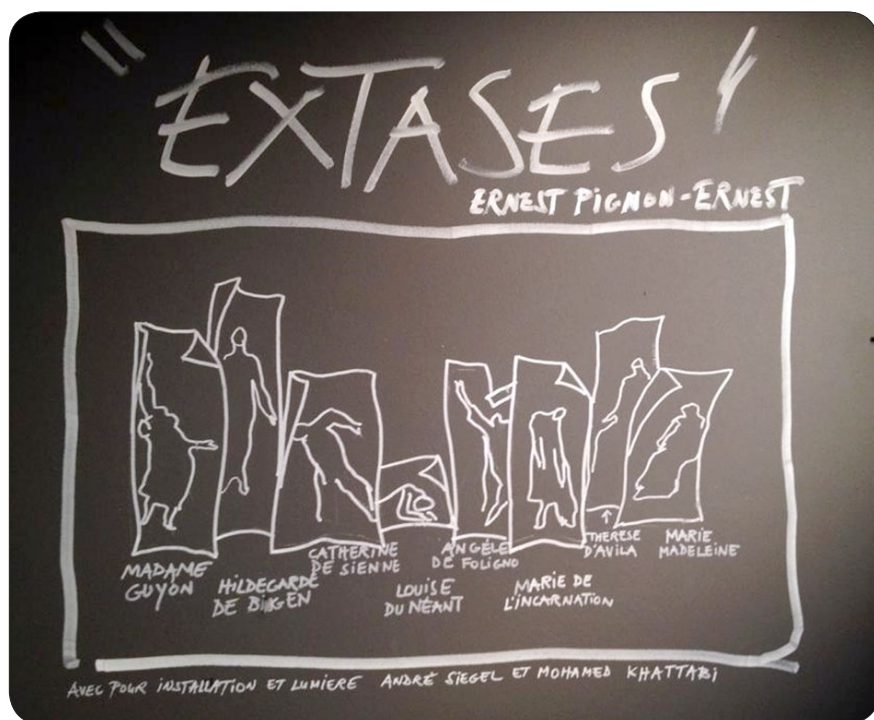 "EXTASES"
ERNEST PIGNON-ERNEST
MADAME
GUYON
HILDEGARDE
DE BINGEN
CATHERINE
DE SIENNE
LOUISE
DU NÉANT
ANGÈLE
DE FOLIGNO
MARIE DE
L'INCARNATION
THERESE
D'AVILA
MARIE
MADELEINE
AVEC POUR INSTALLATION ET LUMIERE ANDRÉ SIEGEL ET MOHAMED KHATTABI